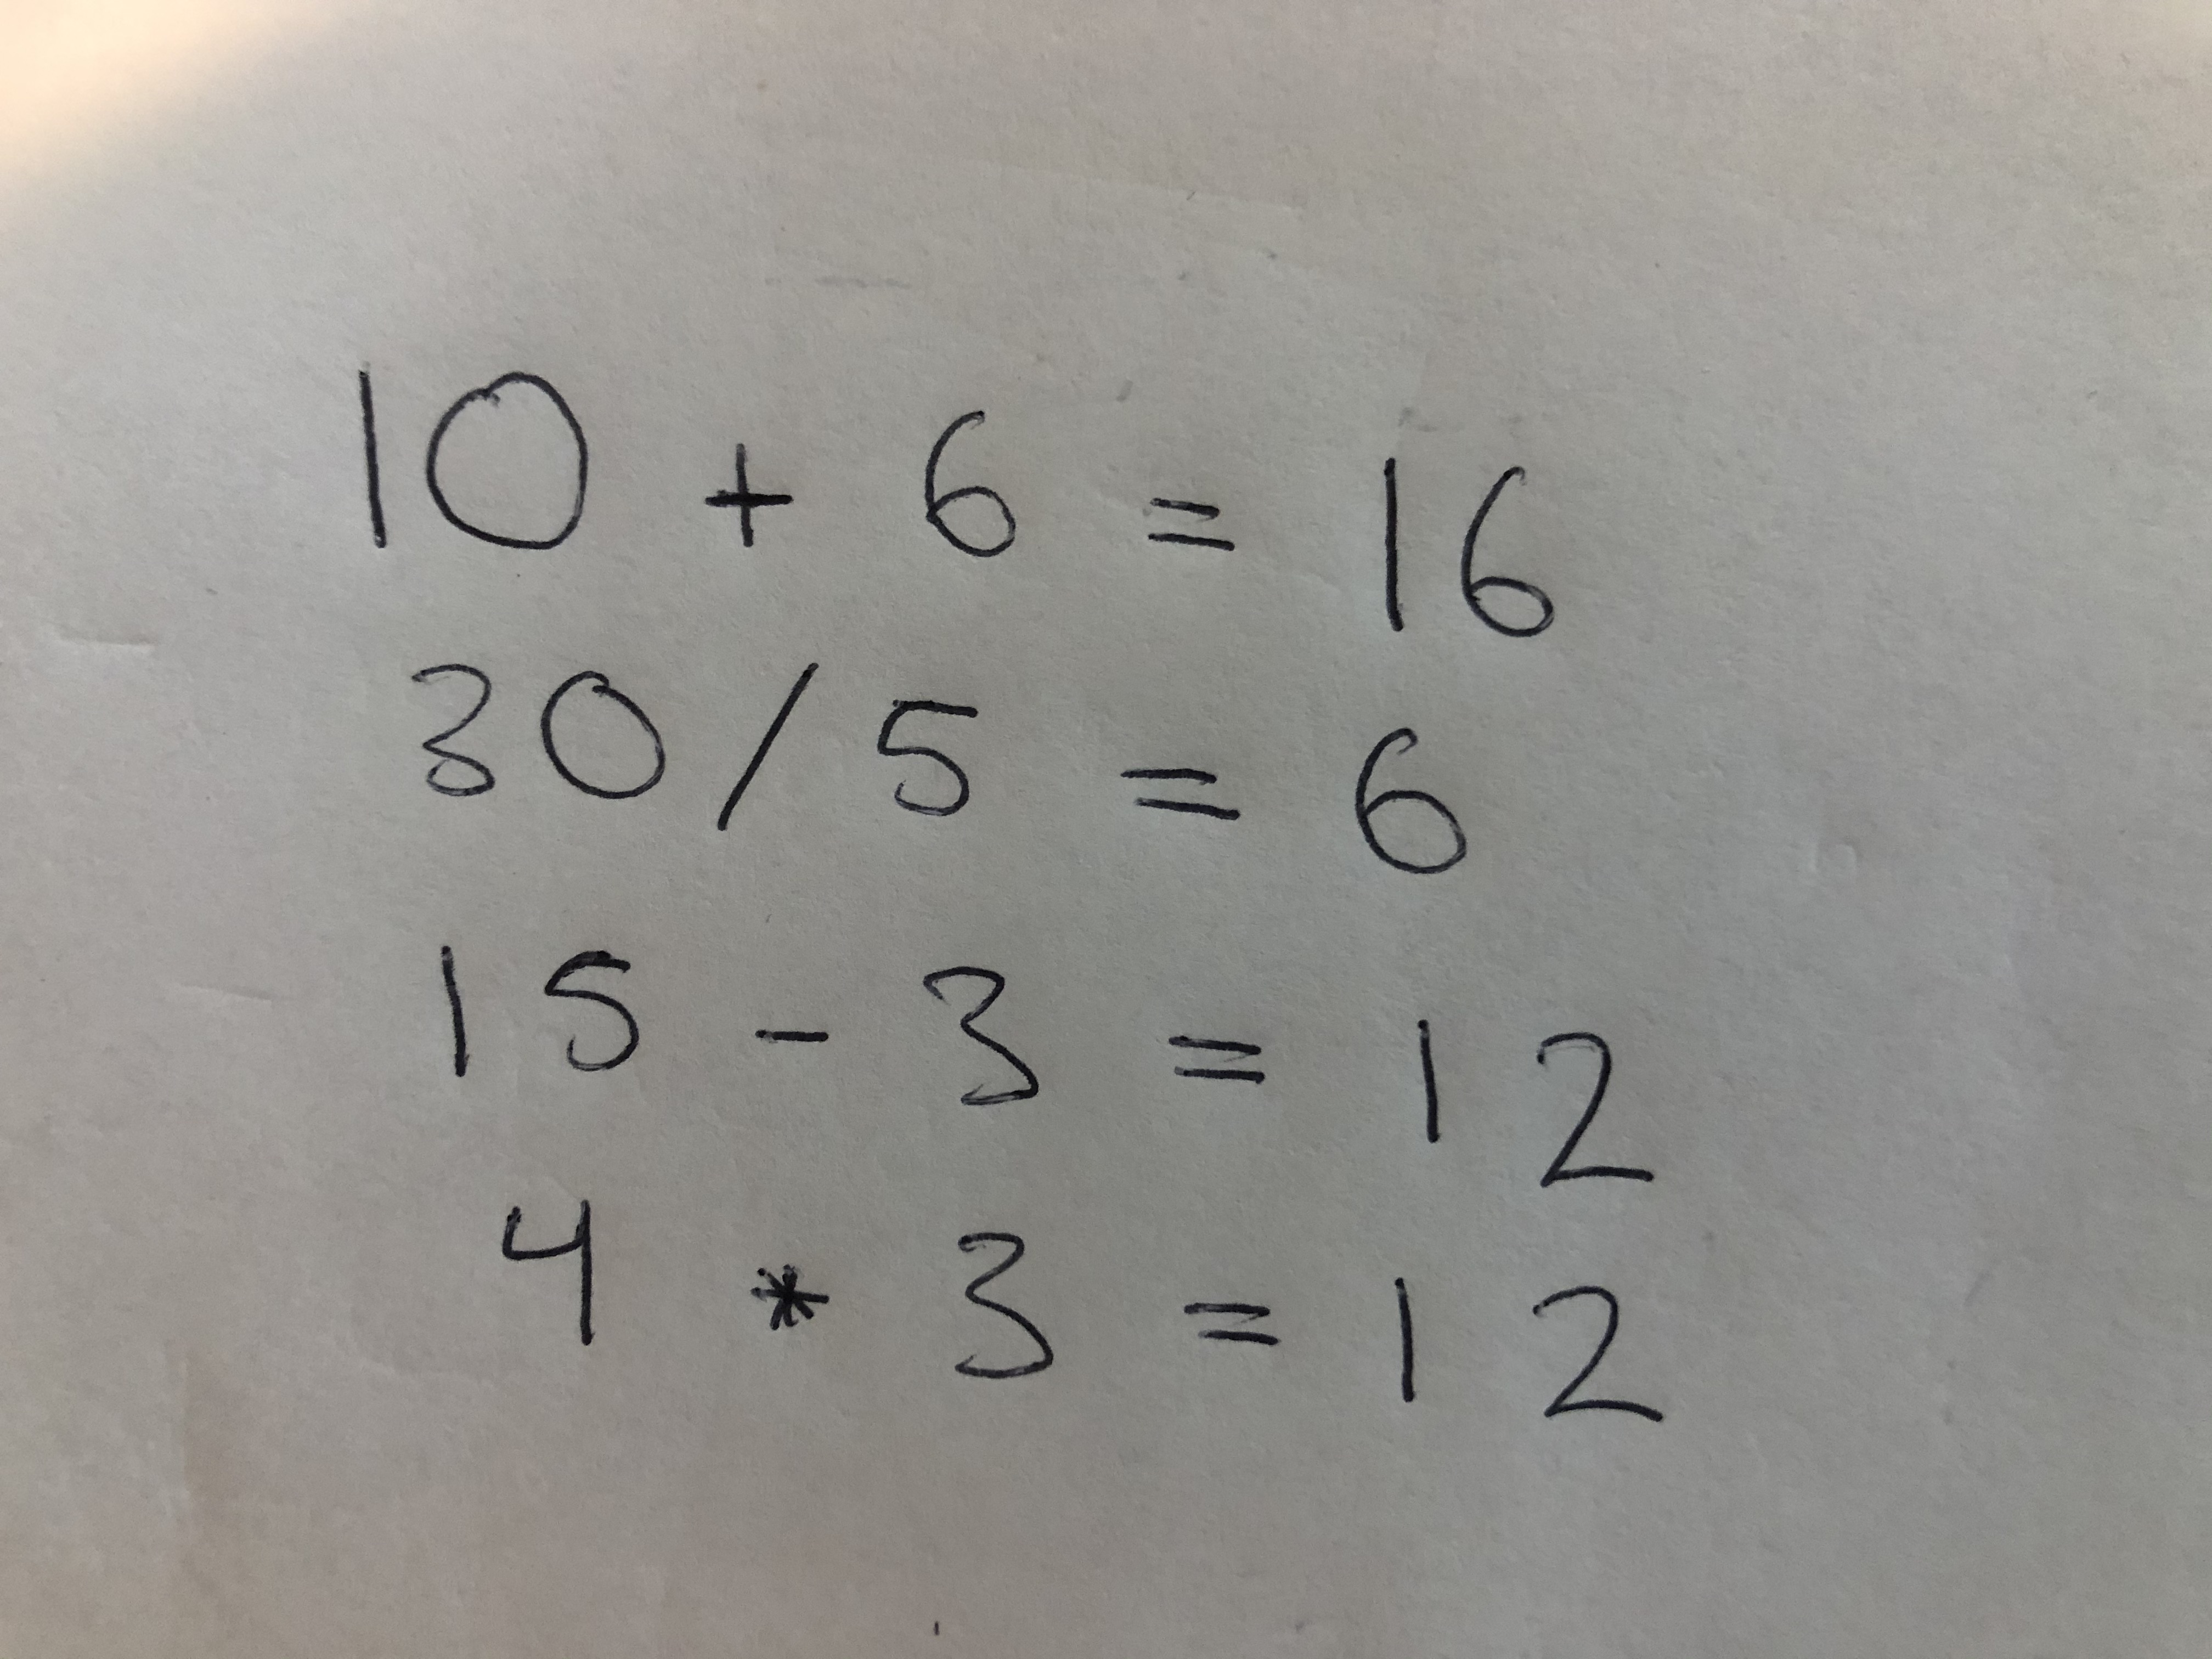 10 + 6 = 16
30 / 5 = 6
15 - 3 = 12
4 * 3 = 12